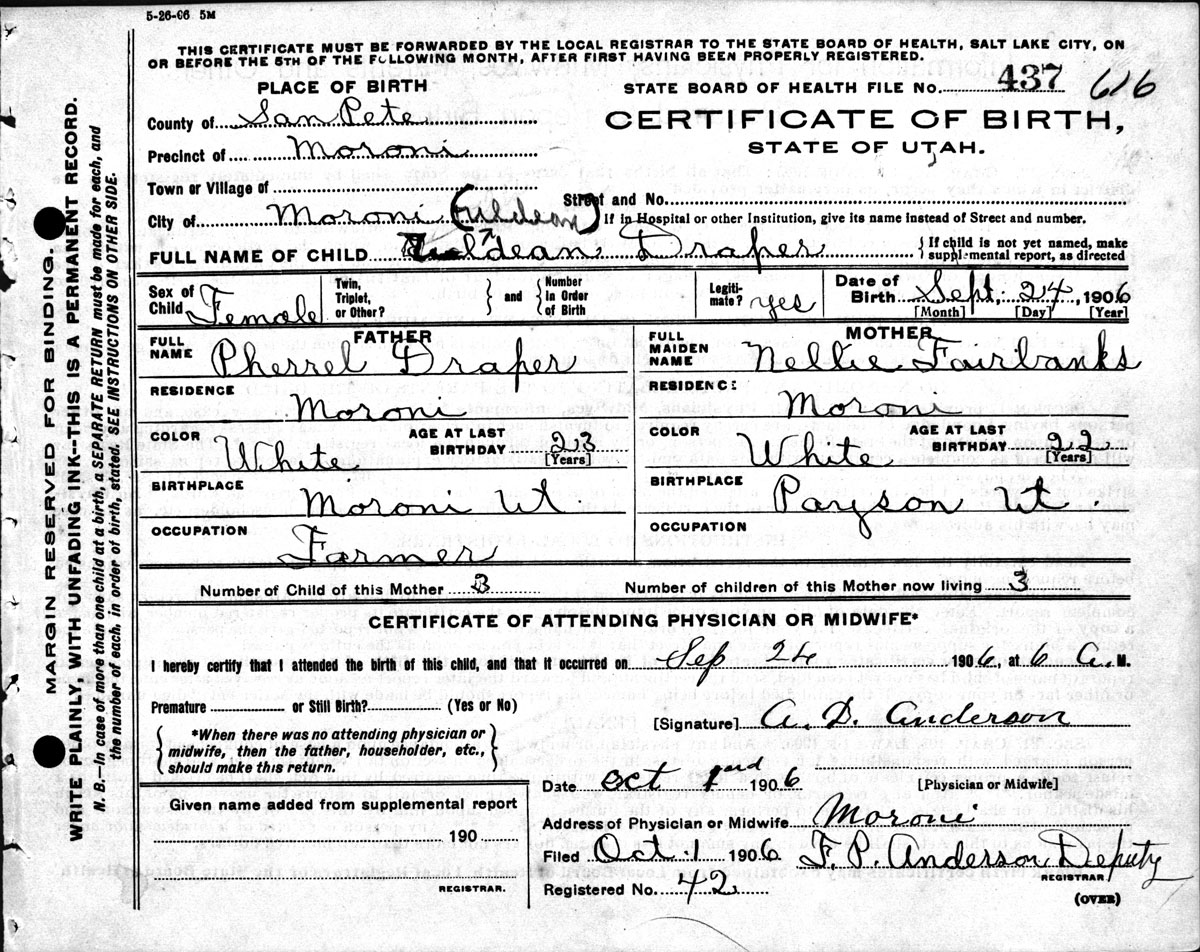 5-26-06 5M
THIS CERTIFICATE MUST BE FORWARDED BY THE LOCAL REGISTRAR TO THE STATE BOARD OF HEALTH, SALT LAKE CITY, ON
OR BEFORE THE 5TH OF THE FOLLOWING MONTH, AFTER FIRST HAVING BEEN PROPERLY REGISTERED.
PLACE OF BIRTH
STATE BOARD OF HEALTH FILE No. 437 616
County of San Pete
CERTIFICATE OF BIRTH,
Precinct of Moroni
STATE OF UTAH.
Town or Village of
Street and No.
City of Moroni (Uldean)
If in Hospital or other Institution, give its name instead of Street and number.
FULL NAME OF CHILD Uldean Draper
{If child is not yet named, make supplemental report, as directed
Sex of Child Female
Twin, Triplet, or Other? } and { Number In Order of Birth
Legitimate? yes
Date of Birth Sept. 24, 1906
[Month] [Day] [Year]
FATHER
FULL NAME Pherrel Draper
RESIDENCE Moroni
COLOR White AGE AT LAST BIRTHDAY 23 [Years]
BIRTHPLACE Moroni Ut
OCCUPATION Farmer
MOTHER
FULL MAIDEN NAME Nellie Fairbanks
RESIDENCE Moroni
COLOR White AGE AT LAST BIRTHDAY 22 [Years]
BIRTHPLACE Payson Ut.
OCCUPATION
Number of Child of this Mother 3 Number of children of this Mother now living 3
CERTIFICATE OF ATTENDING PHYSICIAN OR MIDWIFE*
I hereby certify that I attended the birth of this child, and that it occurred on Sep 24 1906, at 6 A. M.
Premature or Still Birth? (Yes or No)
[Signature] A. D. Anderson
{*When there was no attending physician or
midwife, then the father, householder, etc.,
should make this return.}
Date Oct 1906
[Physician or Midwife]
Given name added from supplemental report
190
REGISTRAR.
Address of Physician or Midwife Moroni
Filed Oct. 1 1906 F. P. Anderson Deputy
REGISTRAR.
Registered No. 42
(OVER)
MARGIN RESERVED FOR BINDING.
WRITE PLAINLY, WITH UNFADING INK--THIS IS A PERMANENT RECORD.
N. B.—In case of more than one child at a birth, a SEPARATE RETURN must be made for each, and
the number of each, in order of birth, stated. SEE INSTRUCTIONS ON OTHER SIDE.